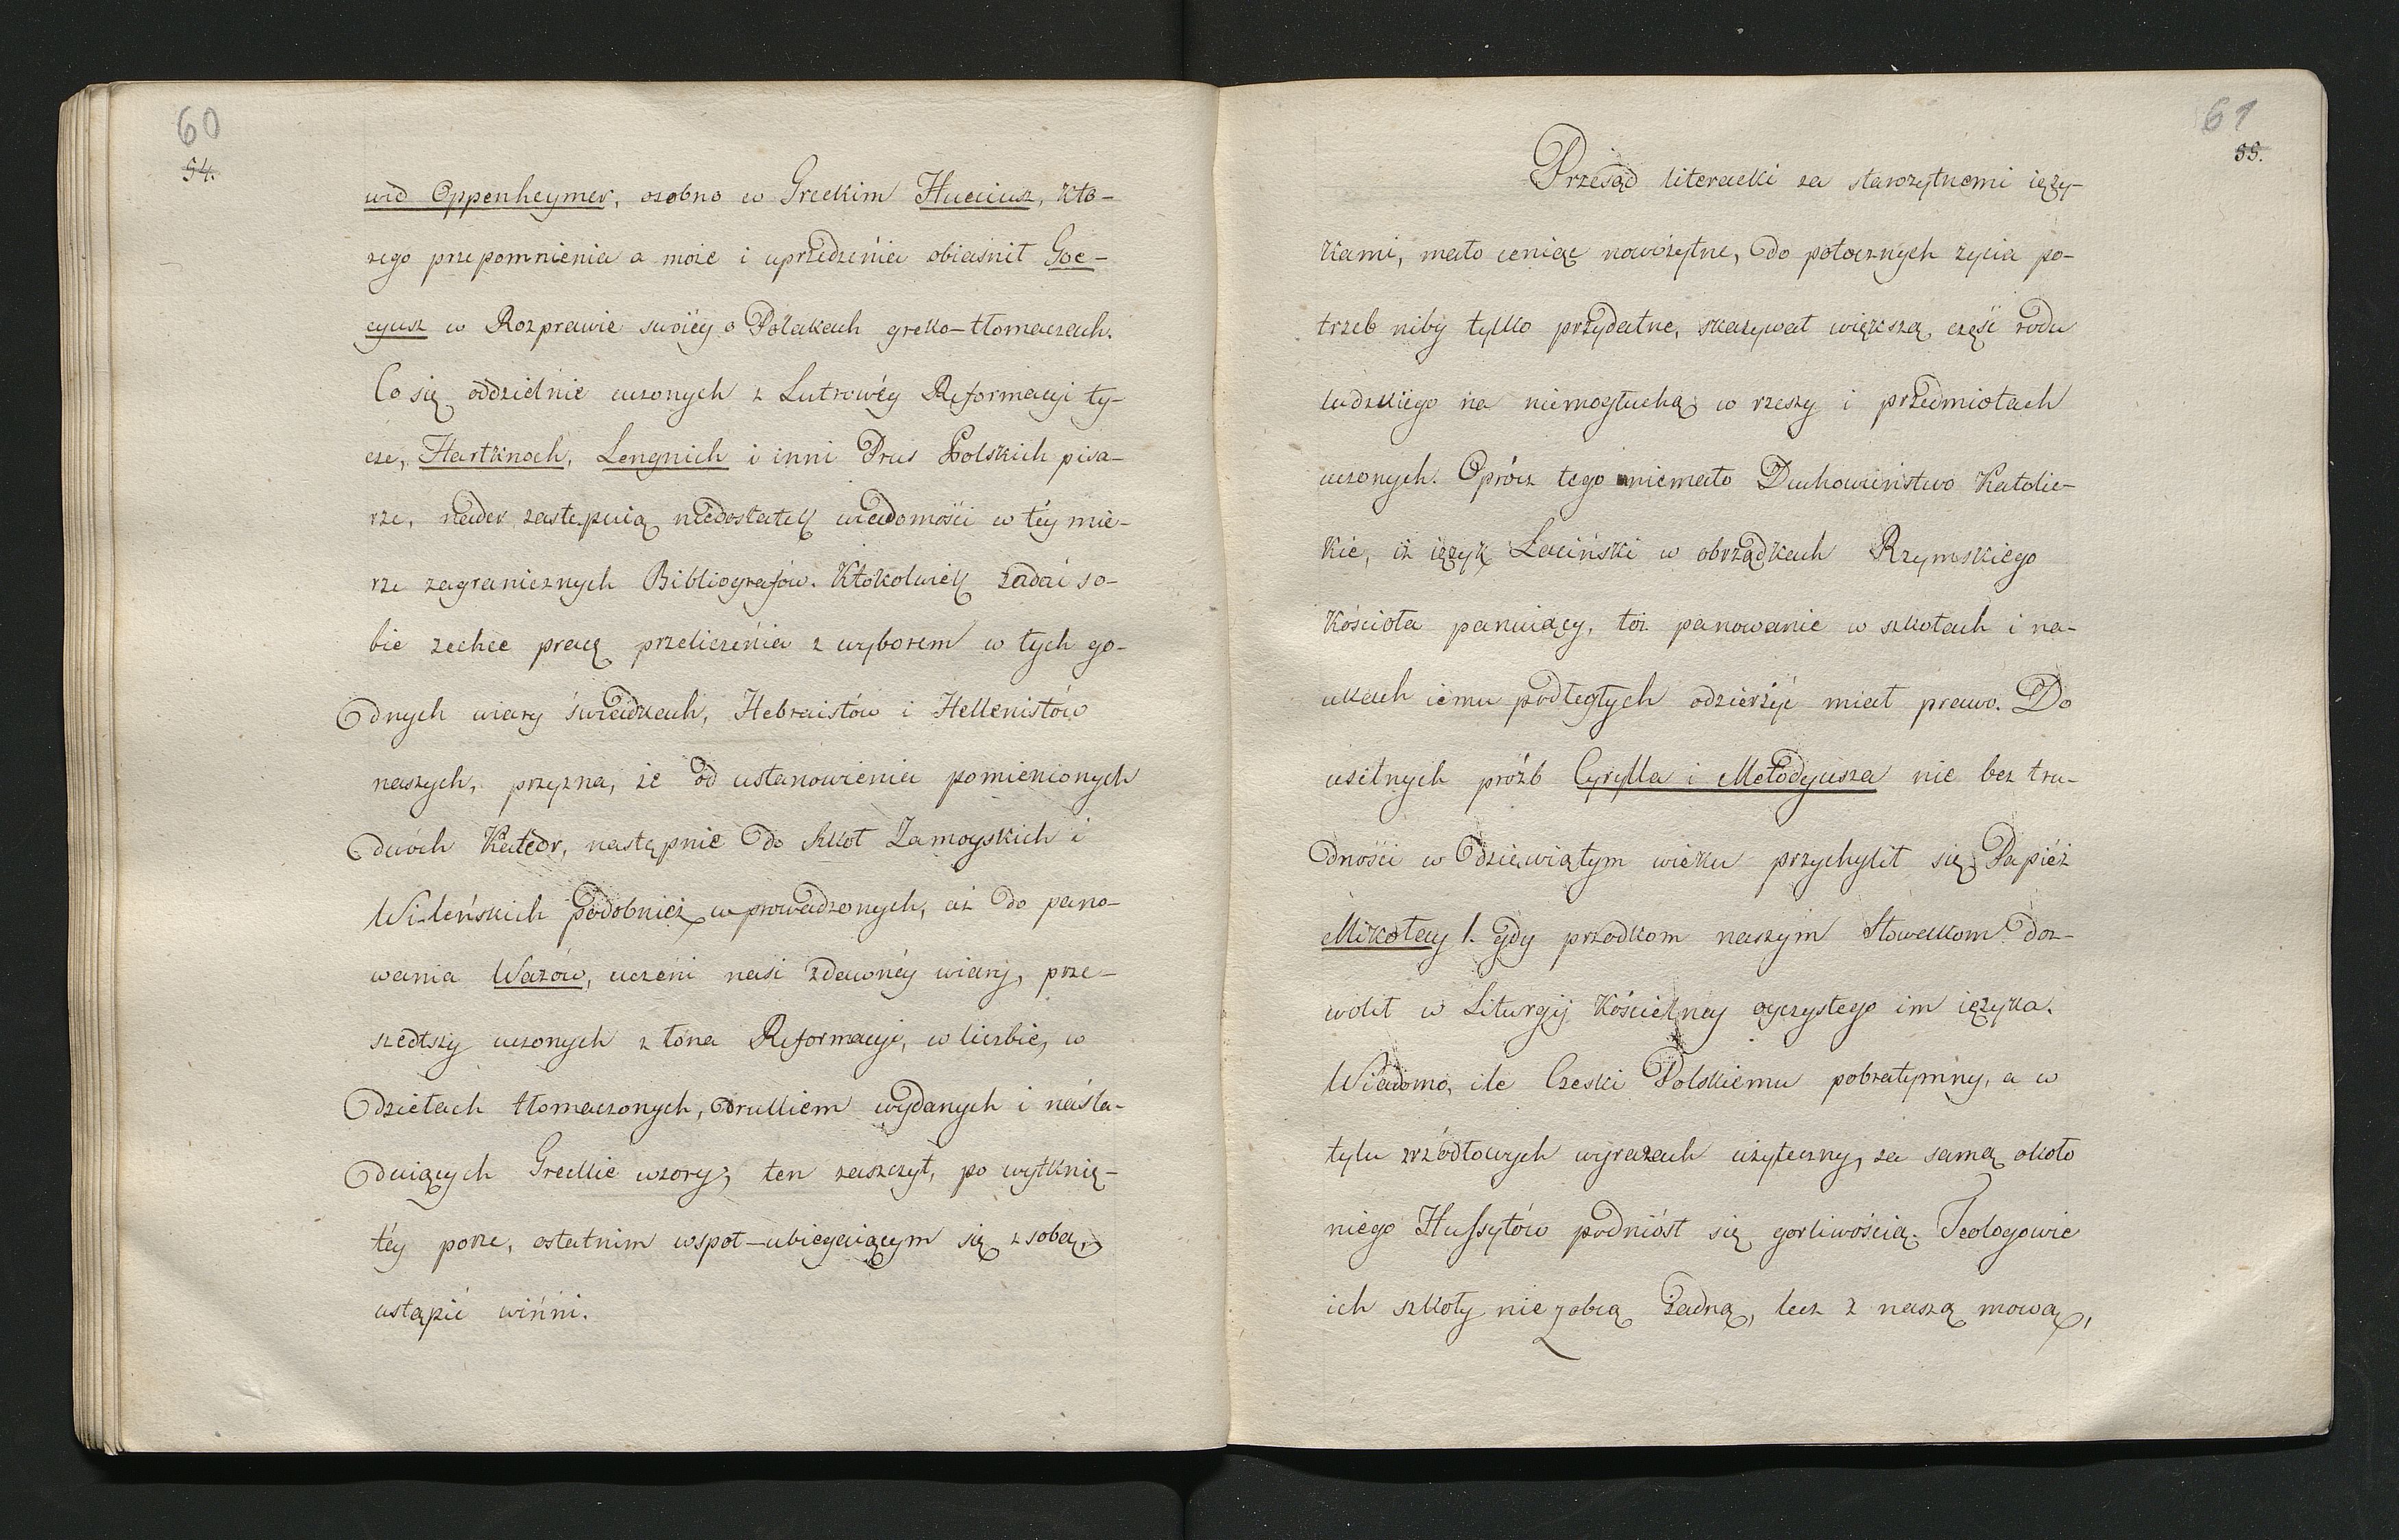 60
54.
wid Oppenheymer, osobno w Greckim Hueciusz, któ-
rego przepomnienia a może i uprzedzenia obiaśnił Goe-
cyusz w Rozprawie swoiéy o Polakach greko-tłomaczach.
Co się oddzielnie uczonych z Lutrowéy Reformacyi ty-
cze, Hartknoch, Lengnich i inni Prus Polskich pisa-
rze, nader zastępuią niedostatek wiadomości w téy mie-
rze zagranicznych Bibliografów. Ktokolwiek zadać so-
bie zechce pracę przeliczenia z wyborem w tych go-
dnych wiary świadkach, Hebraistów i Hellenistów
naszych, przyzna, że od ustanowienia pomienionych
dwóch Katedr, następnie do Szkół Zamoyskich i
Wileńskich podobnież wprowadzonych, aż do pano-
wania Wazów, uczeni nasi zdawnéy wiary, prze-
szedłszy uczonych z łona Reformacyi, w liczbie, w
dziełach tłomaczonych, drukiem wydanych i naśla-
duiących Greckie wzory, ten zaszczyt, po wytknię-
téy porze, ostatnim wspoł-ubiegaiącym się z sobą,
ustąpić winni.
61
55.
Przesąd literacki za starożytnemi ięzy-
kami, mało ceniąc nowożytne, do potocznych życia po-
trzeb niby tylko przydatne, skazywał większą część rodu
ludzkiego na niemogłuchą w rzeszy i przedmiotach
uczonych. Oprócz tego mniemało Duchowieństwo Katolic-
kie, iż ięzyk Łaciński w obrządkach Rzymskiego
Kościoła panuiący, toż panowanie w szkołach i na-
ukach iemu podległych odzierżyć miał prawo. Do
usilnych próżb Cyrylla i Metodyusza nie bez tru-
dności w dziewiątym wieku przychylił się Papiéż
Mikołay I. gdy przodkom naszym Słowakom doz-
wolił w Liturgij Kościelney oyczystego im ięzyka.
Wiadomo, ile Czeski Polskiemu pobratymny, a w
tylu zrzódłowych wyrazach użyteczny, za samą około
niego Hussytów podniósł się gorliwością. Teologowie
ich szkoły nie z obcą żadną, lecz z naszą mową,